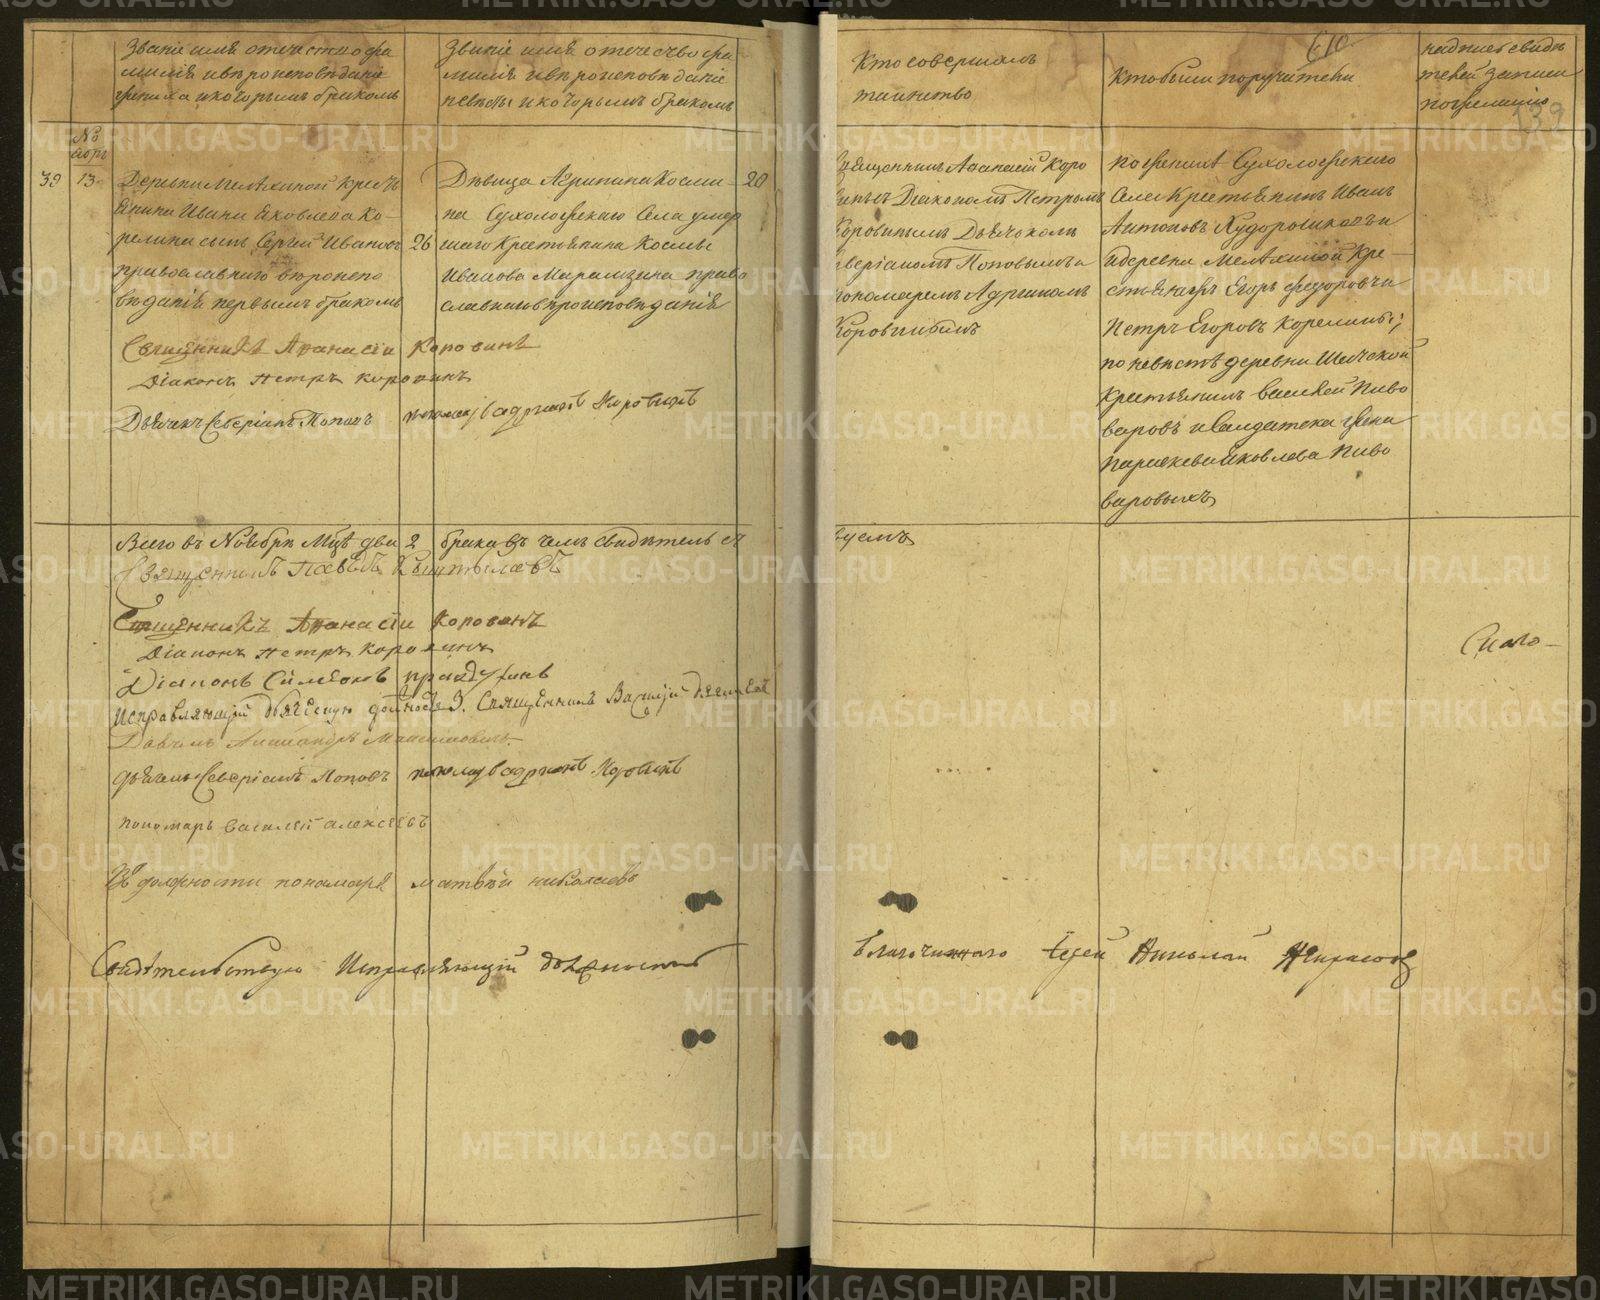 Званіе имя отечество фа
милія и вѣроисповѣданіе
жениха и которымъ бракомъ
Званіе имя отечество фа
милія и вѣроисповѣданіе
невѣсты и которымъ бракомъ
Кто совершалъ
таинство
Кто были поручители
надпись свидѣ
телей записи
по желанію
610
139
№
Нояб
39 13
Деревни Мелѣхиной кресть
янина Ивана Яковлева Ко-
релина сынъ Сергей Ивановъ 26
православнаго вѣроиспо
вѣданія первымъ бракомъ
Дѣвица Агрипина Косми- 20
на Сухоложскаго Села умер
шаго Крестьянина Космы
Иванова Марамзина право
славнаго вѣроисповѣданія
Священникъ Афанасій Коро
винъ съ Діакономъ Петромъ
Коровинымъ Дьячкомъ
Северіаномъ Поповымъ и
пономаремъ Адріаномъ
Коровинымъ
По женихѣ Сухоложскаго
Села Крестьянинъ Иванъ
Антоновъ Кудорошковъ и
деревни Мелѣхиной Кре-
стьянинъ Егоръ Федоровъ и
Петръ Егоровъ Корелины;
по невѣстѣ деревни
Крестьянинъ Василей Пиво
варовъ и Салдатска жена
Парасковья Яковлева Пиво
варовыхъ
Священникъ Афанасіи Коровинъ
Діаконъ Петръ Коровинъ
Дьячекъ Северіанъ Поповъ пономарь Адріанъ Коровинъ
Всего въ Ноябрѣ Мцѣ два 2 брака въ чемъ свидѣтельст
вуемъ
Священникъ Павелъ
Священникъ Афанасіи Коровинъ
Діаконъ Петръ Коровинъ
Діаконъ Симеонъ
Исправляющій дьяческую должность З. Священникъ Василій
Дьячекъ Александръ
дьячекъ Северіанъ Поповъ пономарь Адріанъ Коровинъ
пономарь Василей Алексѣевъ
Въ должности пономаря Матвѣй Николаевъ
Свидѣтельствую Исправляющій должность
благочиннаго Іерей Николай Некрасовъ
METRIKI.GASO-URAL.RU